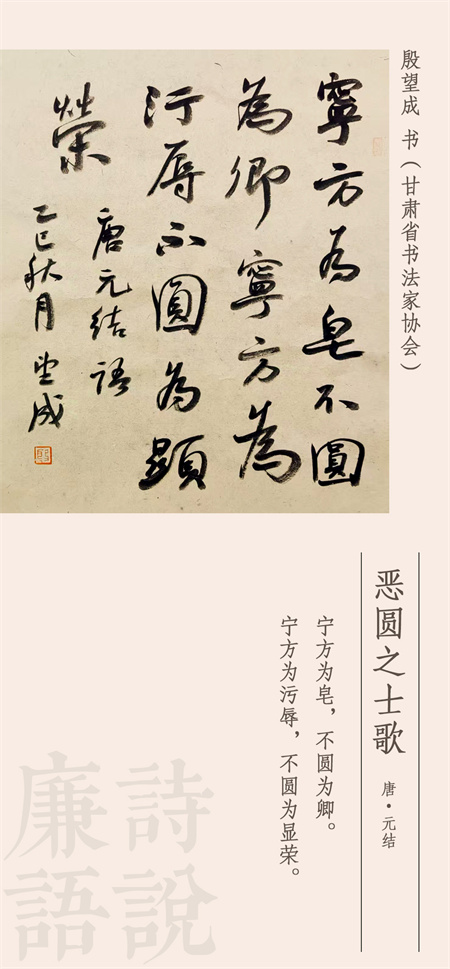 殷望成 书（甘肃省书法家协会）
寧方为皂不圓
為卿寧方為
汙辱不圓為顯
榮
唐元结語
乙巳秋月望成
恶圆之士歌
唐·元结
宁方为皂，不圆为卿。
宁方为污辱，不圆为显荣。
詩說
廉語